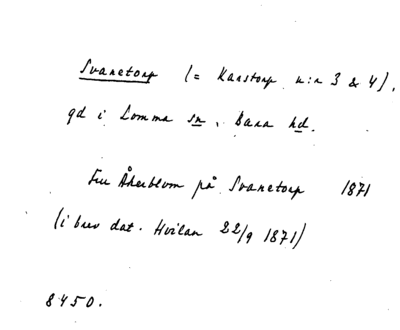 Svanetorp (= Karstorp n:r 3 & 4),
gd i Lomma sn, Bara hd.
Fru Åkerblom på Svanetorp 1871
(i brev dat. Hvilan 22/9 1871)
8450.